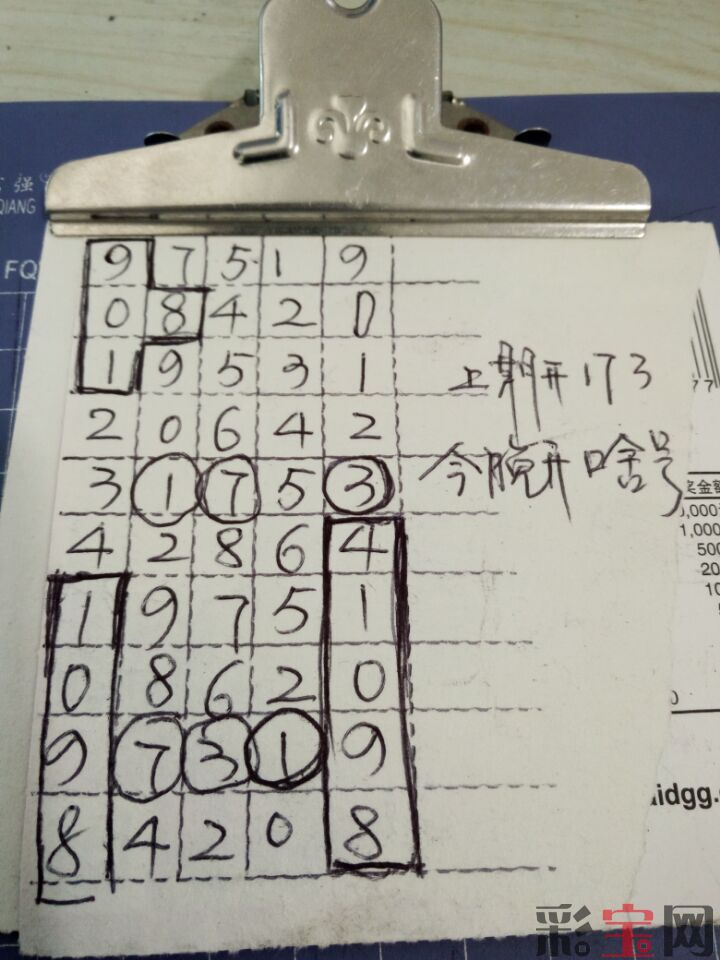 强
QIANG
FQ
9 7 5 1 9
0 8 4 2 0
1 9 5 3 1
上期开173
77
2 0 6 4 2
今晚开啥号
3 1 7 5 3
奖金额
0,000元
1,000
4 2 8 6 4
500
20
10
1 9 7 5 1
0 8 6 2 0
9 7 3 1 9
aidgg.
8 4 2 0 8
彩宝网